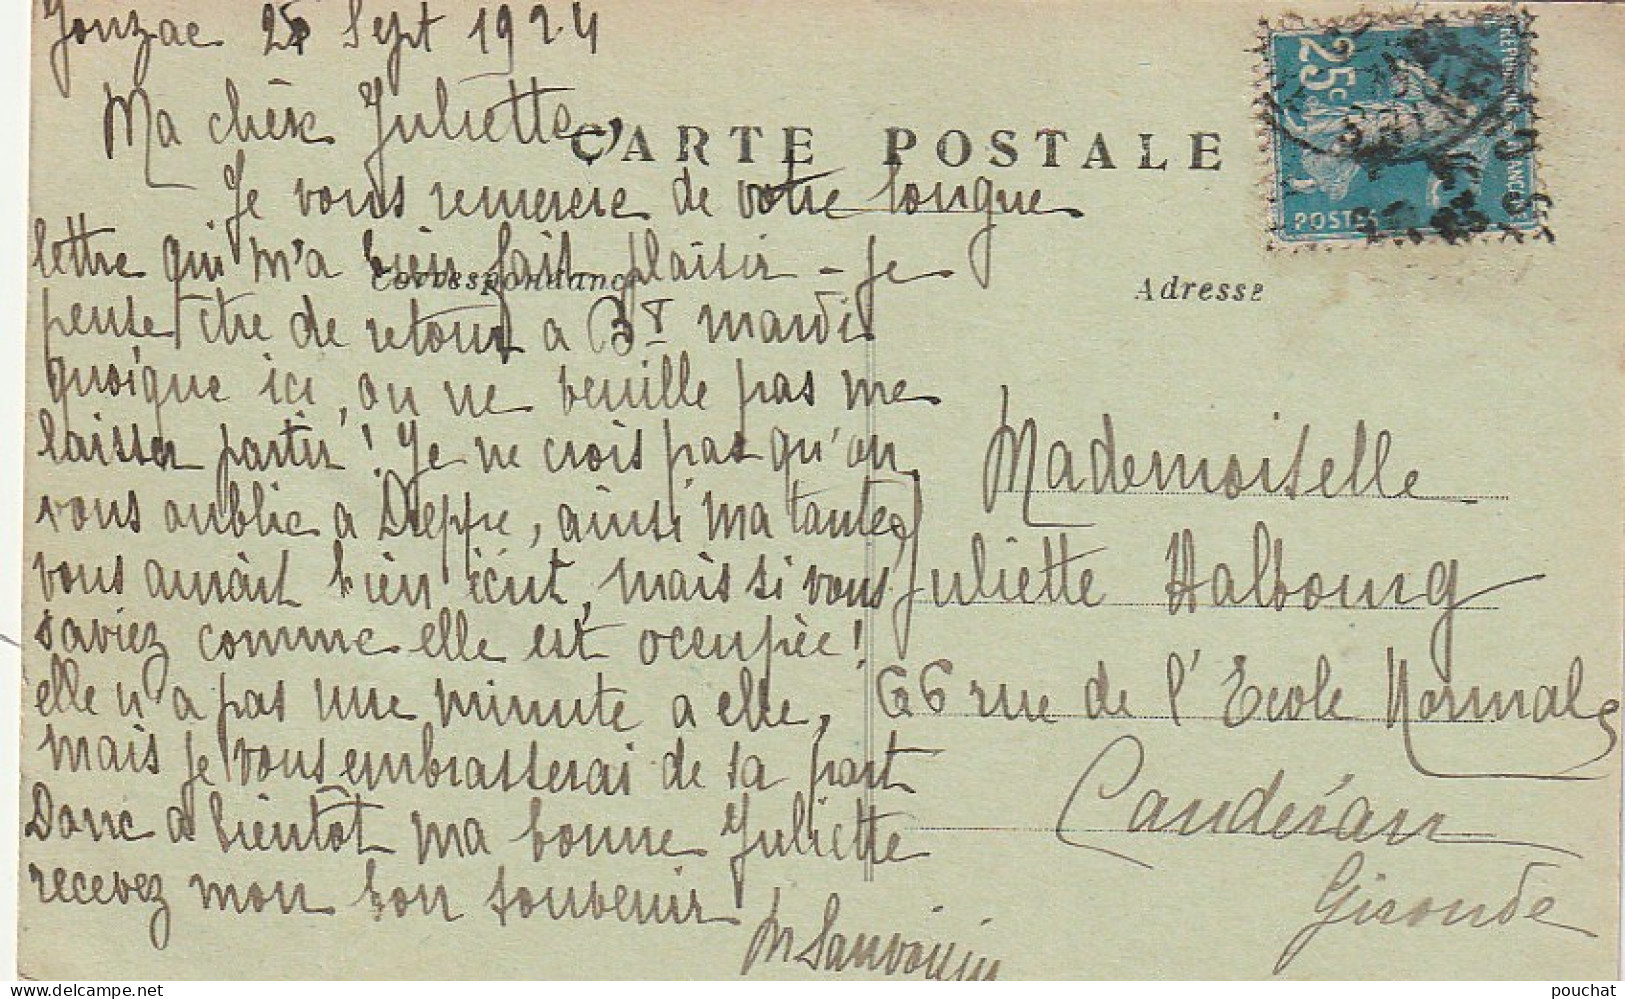 Jonzac 25 Sept 1924
Ma chère Juliette,
CARTE POSTALE
Je vous remercie de votre longue
lettre qui m'a bien fait plaisir - je
Correspondance
pense être de retour a Bx mardi
quoique ici, on ne veuille pas me
laisser partir! Je ne crois pas qu'on
vous oublie a Dieppe, ainsi ma tante
vous aurait bien écrit, mais si vous
saviez comme elle est occupée!
elle n'a pas une minute a elle,
mais je vous embrasserai de sa part
Donc a bientôt ma bonne Juliette
recevez mon bon souvenir
M Sauvoisin
25c
REPUBLIQUE FRANCAISE
POSTES
Adresse
Mademoiselle
Juliette Halbourg
66 rue de l'Ecole Normale
Caudéran
Gironde
pouchat